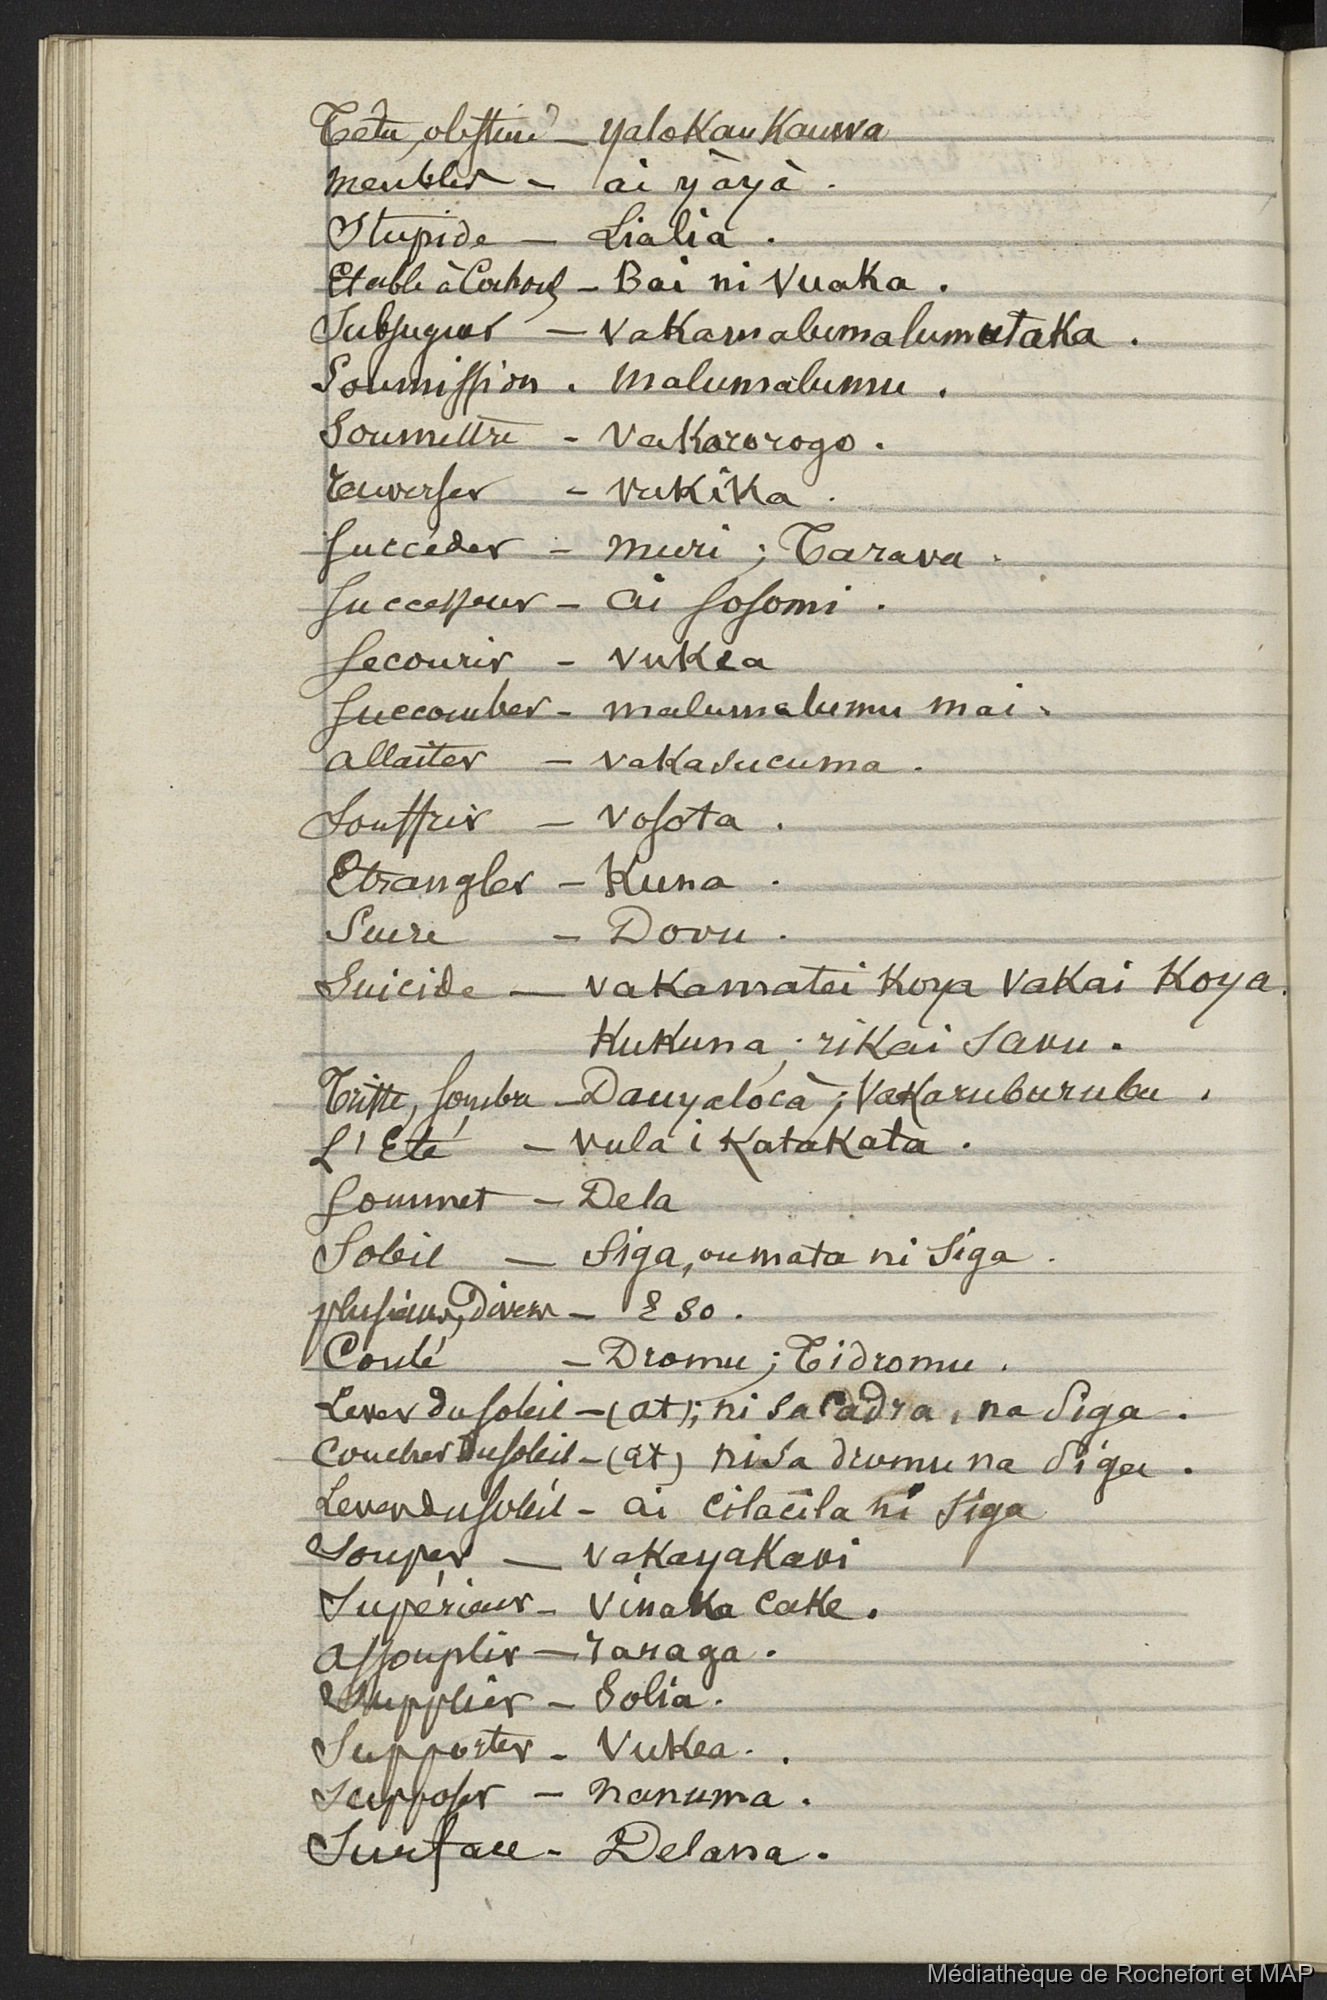 Têtu, obstiné – yalokaukauwa
meubles – ai yàyà .
Stupide – Lialia .
Etable à Cochons – Bai ni Vuaka .
Subjuguer – vakamalumalumutaka .
Soumission . malumalumu .
Soumettre – Vakarorogo .
renverser – vukika .
succéder – muri ; Tarava .
successeur – ai sosomi .
secourir – vukea
succomber – malumalumu mai .
allaiter – vakasucuma .
Souffrir – vosota .
Etrangler – Kuna .
Sucre – Dovu .
Suicide – vakamatei koya Vakai Koya .
Kukuna ; rikai savu .
Triste, sombre – Dauyalocà ; Vakaruburubu .
L'Eté – vula i katakata .
Sommet – Dela
Soleil – Siga, ou mata ni siga .
plusieurs, Divers – E so .
Coulé – Dromu ; Tidromu .
Lever du soleil – (at) ; ni sa Cadra , na Siga .
Coucher du soleil – (at) ni sa dromu na Siga .
Lever du soleil – ai cilacila ni siga
Souper – vakayakavi
Supérieur – vinaka cake .
assouplir – ranaga .
Supplier – Solia .
Supporter – Vukea . .
Supposer – nanuma .
Surface – Delana .
Médiathèque de Rochefort et MAP